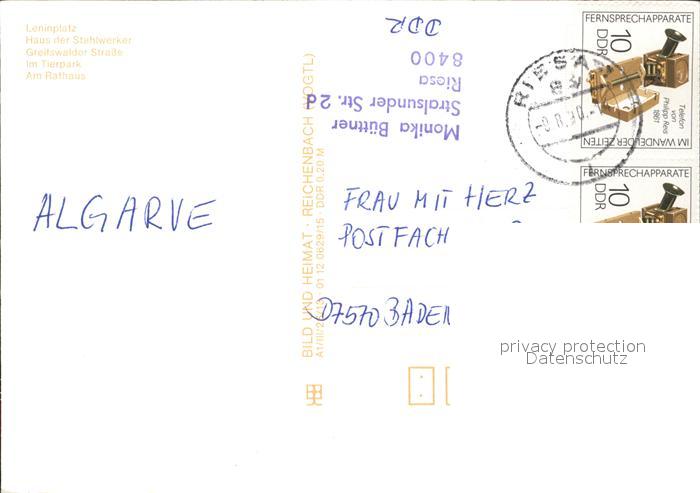 Leninplatz
Haus der Stahlwerker
Greifswalder Straße
Im Tierpark
Am Rathaus
Monika Büttner
Stralsunder Str. 2d
Riesa
8400
DDR
BILD UND HEIMAT · REICHENBACH (VOGTL)
01 12 0629/15 · DDR 0,20 M
FERNSPRECHAPPARATE
10
DDR
Telefon
von
Philipp Reis
1861
IM WANDEL DER ZEITEN
RIESA
FERNSPRECHAPPARATE
10
DDR
ALGARVE
FRAU MIT HERZ
POSTFACH
D7570 BADEN
privacy protection
Datenschutz